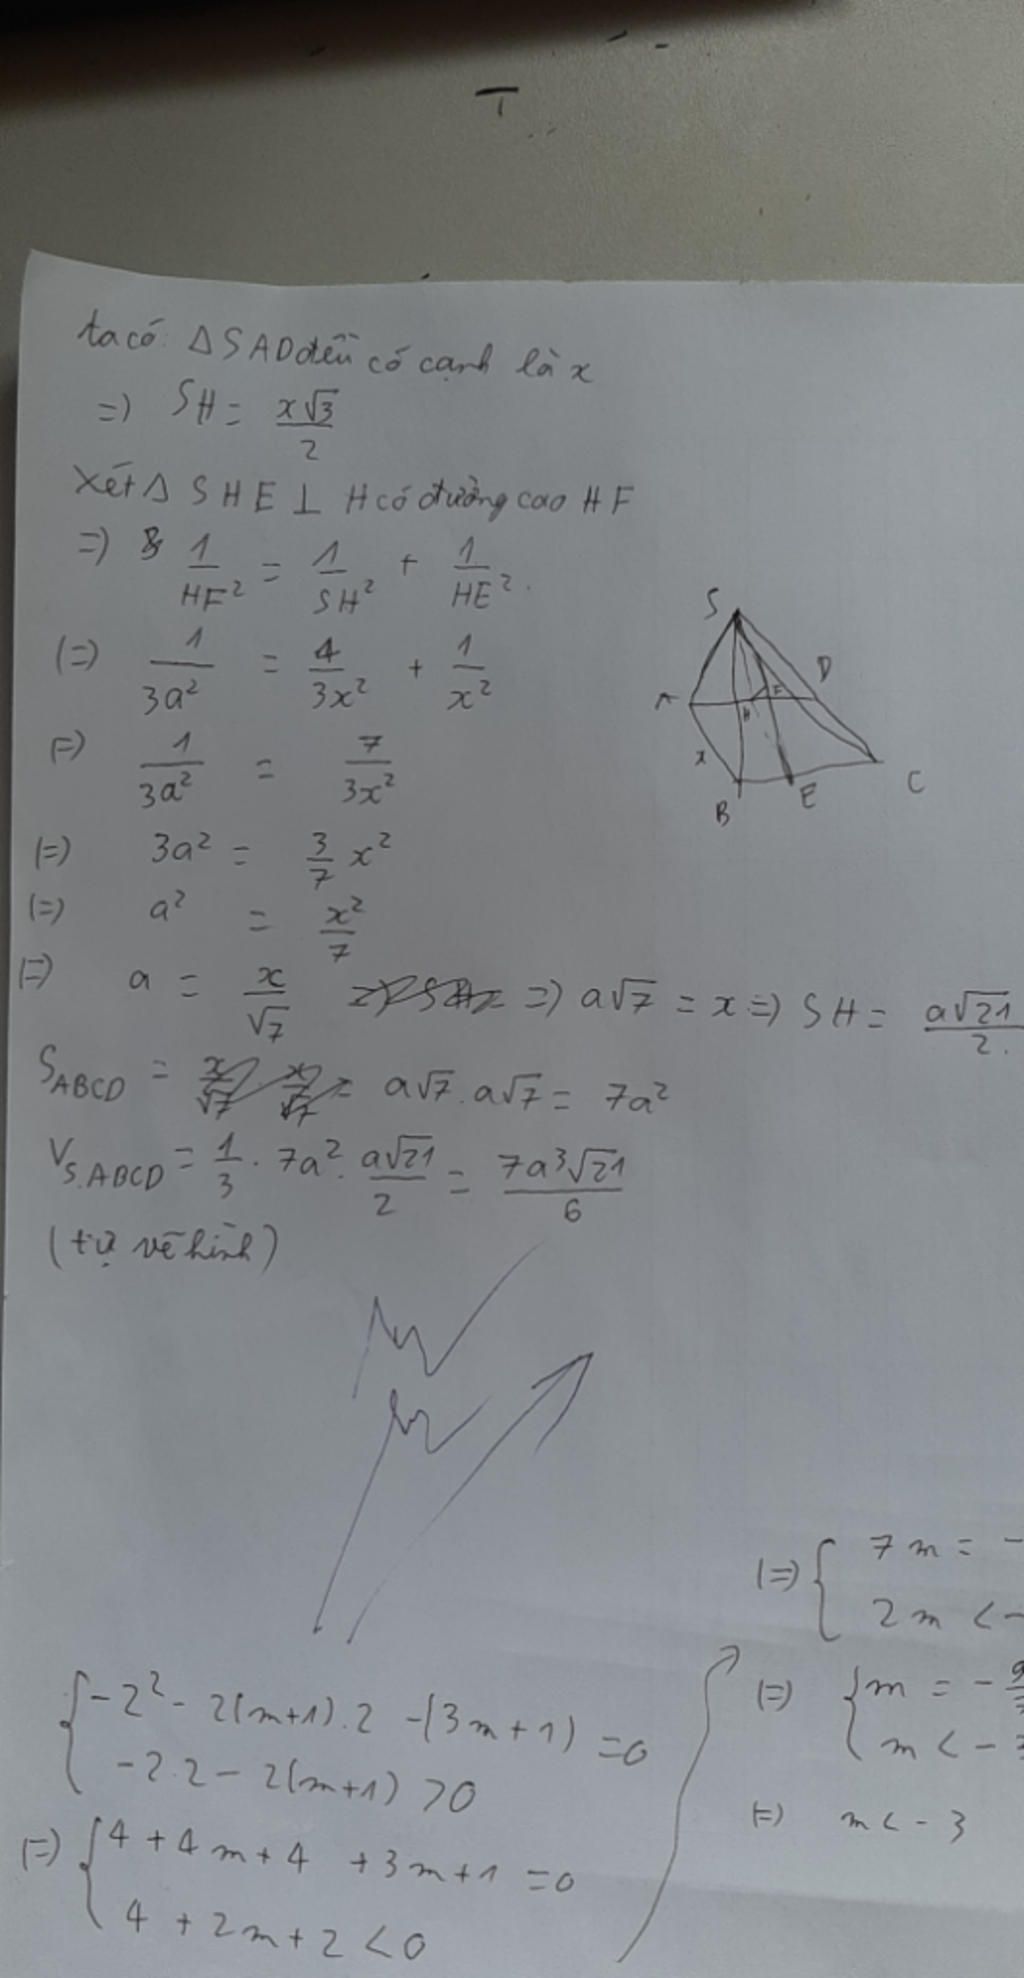 ta có: Δ SAD đều có cạnh là x
=) SH = x√3/2
Xét Δ SHE ⊥ H có đường cao HF
=) 1/HF² = 1/SH² + 1/HE².
(=) 1/3a² = 4/3x² + 1/x²
(=) 1/3a² = 7/3x²
(=) 3a² = 3/7 x²
(=) a² = x²/7
(=) a = x/√7 =) a√7 = x =) SH = a√21/2.
S_ABCD = a√7 . a√7 = 7a²
V_S.ABCD = 1/3 . 7a² . a√21/2 = 7a³√21/6
(tự vẽ hình)
S
A
D
H
F
x
B
E
C
{ -2² - 2(m+1).2 - (3m+1) = 0
-2.2 - 2(m+1) > 0
(=) { 4 + 4m + 4 + 3m + 1 = 0
4 + 2m + 2 < 0
(=) { 7m = -
2m < -
(=) { m = - 9/7
m < - 3
(=) m < - 3